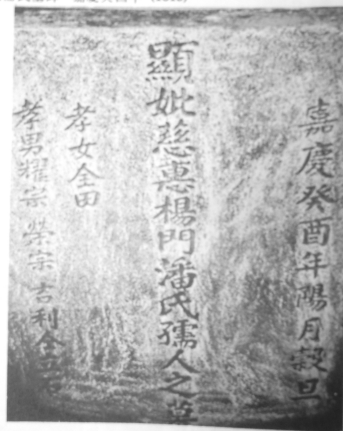 嘉慶癸酉年陽月穀旦
顯妣慈惠楊門潘氏孺人之墓
孝女全田
孝男耀宗 榮宗 吉利全立石